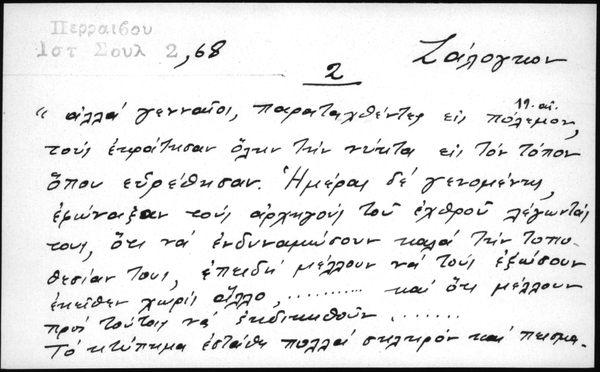 Περραιβου
Ιστ Σουλ 2,68
2
Ζάλογκον
" ἀλλά γενναῖοι, παραταχθέντες εἰς πόλεμον,
τούς ἐκράτησαν ὅλην τήν νύκτα εἰς τόν τόπον
ὅπου εὑρέθησαν. Ἡμέρας δέ γενομένης,
ἐφώναξαν τούς ἀρχηγούς τοῦ ἐχθροῦ λέγωντάς
τους, ὅτι νά ἐνδυναμώσουν καλά τήν τοπο-
θεσίαν τους, ἐπειδή μέλλουν νά τούς ἐξώσουν
ἐκεῖθεν χωρίς ἄλλο, ........... καί ὅτι μέλλουν
πρός τούτοις νά ἐκδικηθοῦν .......
Τό κτύπημα ἐστάθη πολλά σκληρόν καί πεισμα-